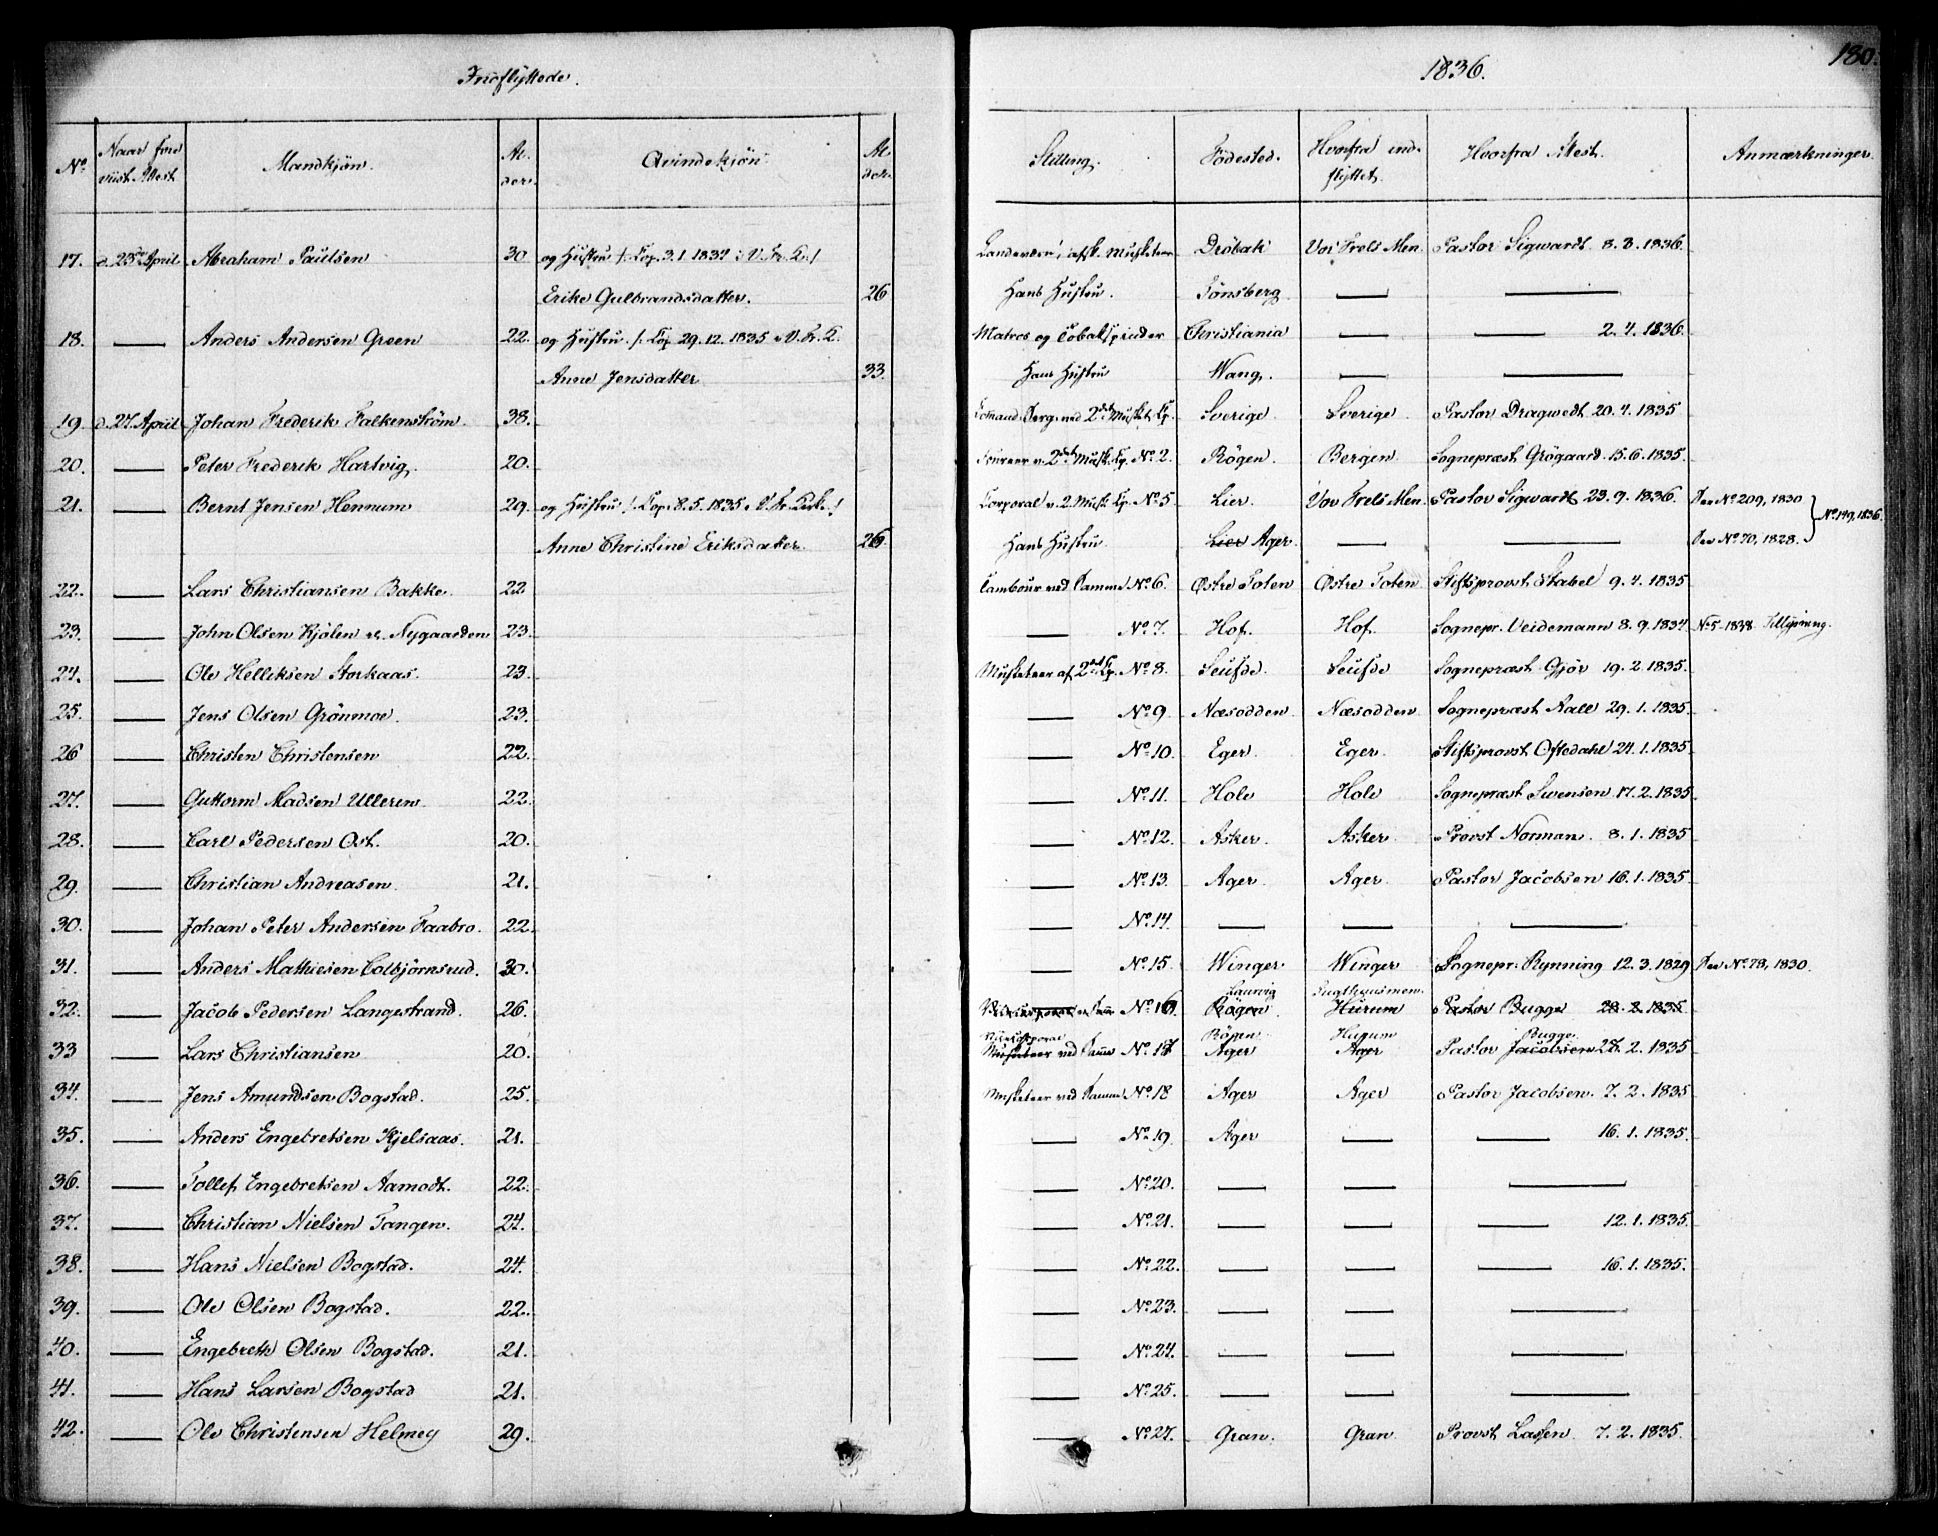 Indflyttede. 1836. 180.
No. Naar fore viist Attest. Mandkjön. Al. der. Qvindekjön. Al. der. Stilling. Födested. Hvorfra ind- flyttet. Hvorfra Attest. Anmærkninger.
17. d. 23de April Abraham Paulsen 30 og Hustru /: Cop. 3.1.1832 i V. Fr. K. / afsk. Musketeer Dröbak Vor Frels Men. Pastor Sigwardt 8.3.1836.
Erike Gulbrandsdatter. 26 Hans Hustru. Tönsberg. — —
18. — Anders Andersen Green 22. og Hustru /: Cop 29.12.1835 i V. Fr. K. Matros og Christiania — — 2.4.1836.
Anne Jensdatter 33. Hans Hustru Wang. — —
19. d. 27 April Johan Frederik Falkenström. 38. Serg. ved 2det Musket. Cp. Sverige. Sverige. Pastor Dragwedt 20.4.1835
20. — Peter Frederik Hartvig. 20. Foureer v. 2det Musk. Cp. No. 2. Rögen. Bergen. Sognepræst Grögaard. 15.6.1835.
21. — Bernt Jensen Hennum 29. og Hustru /: Cop. 8.5.1835 i V. Fr. Kirke. / Corporal v. 2. Musk. Cp. No. 5 Lier. Vor Frels Men. Pastor Sigwardt 23.9.1836. See No. 209, 1830
Anne Christine Eriksdatter. 26. Hans Hustru. Lier Ager. — — See No. 70, 1828. } No. 149, 1836.
22. — Lars Christiansen Bakke. 22 Tambour ved samme No. 6. Östre Toten Östre Toten Stiftsprovst Stabel 9.4.1835
23. — John Olsen Kjölen v. Nygaarden 23. — No. 7. Hof. Hof. Sognepr. Veidemann 8.9.1834 No. 5 1838 Tillysning.
24. — Ole Helliksen Storkaas. 23. Musketeer af 2det Cp. No. 8. Seufde. Seufde Sognepræst Gjör 19.2.1835.
25. — Jens Olsen Grönmoe. 23. — No. 9. Næsodden. Næsodden. Sognepræst Aall 29.1.1835.
26 — Christen Christensen 22. — No. 10. Eger. Eger. Stiftsprovst Oftedahl 24.1.1835
27. — Guttorm Madsen Ulleren. 22. — No. 11. Hole Hole Sognepræst Swensen 17.2.1835.
28. — Carl Pedersen Ost. 20. — No. 12. Asker. Asker. Provst Norman. 8.1.1835
29. — Christian Andreasen. 21. — No. 13. Ager. Ager. Pastor Jacobsen 16.1.1835.
30. — Johan Peter Andersen Faabro. 22. — No. 14. — — —
31. — Anders Mathiesen Colbjörnsrud. 30. — No. 15. Winger. Winger Sognepr. Rynning 12.3.1829 See No. 78, 1830.
Laurvig Tugthuusmen.
32. — Jacob Pedersen Langestrand. 26. No. 16 Rögen Hurum Pastor Bugge 28.2.1835
Vicecorporal Rögen Hurum Bugge.
33 — Lars Christiansen 20. Musketeer ved samme No. 17 Ager Ager Pastor Jacobsen 28.2.1835
34. — Jens Amundsen Bogstad. 25. Musketeer ved samme No. 18 Ager Ager Pastor Jacobsen. 7.2.1835
35. — Anders Engebretsen Kjelsaas. 21. — No. 19. Ager — — 16.1.1835.
36. — Tollef Engebretsen Aamodt. 22. — No. 20. — — —
37. — Christian Nielsen Tangen. 24. — No. 21. — — — 12.1.1835.
38. — Hans Nielsen Bogstad. 24. — No. 22. — — — 16.1.1835.
39. — Ole Olsen Bogstad. 22. — No. 23. — — —
40. — Engebreth Olsen Bogstad. 21. — No. 24. — — —
41. — Hans Larsen Bogstad 21. — No. 25. — — —
42. — Ole Christensen Helmey 29. — No. 27. Gran. Gran Provst Lassen. 7.2.1835.